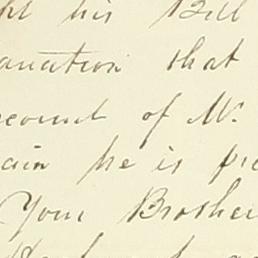 his Bill
anation that
ccount of Mr.
ain he is pre
Your Brother